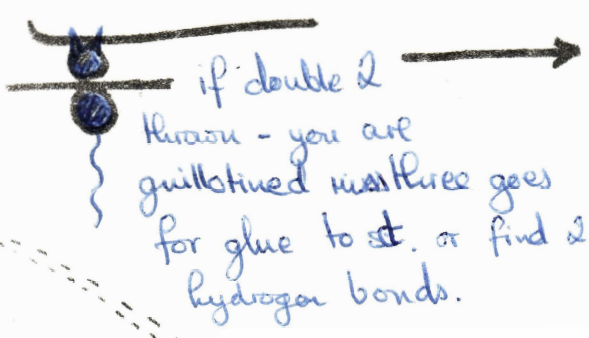 if double 2
thrown - you are
guillotined miss three goes
for glue to set. or find 2
hydrogen bonds.